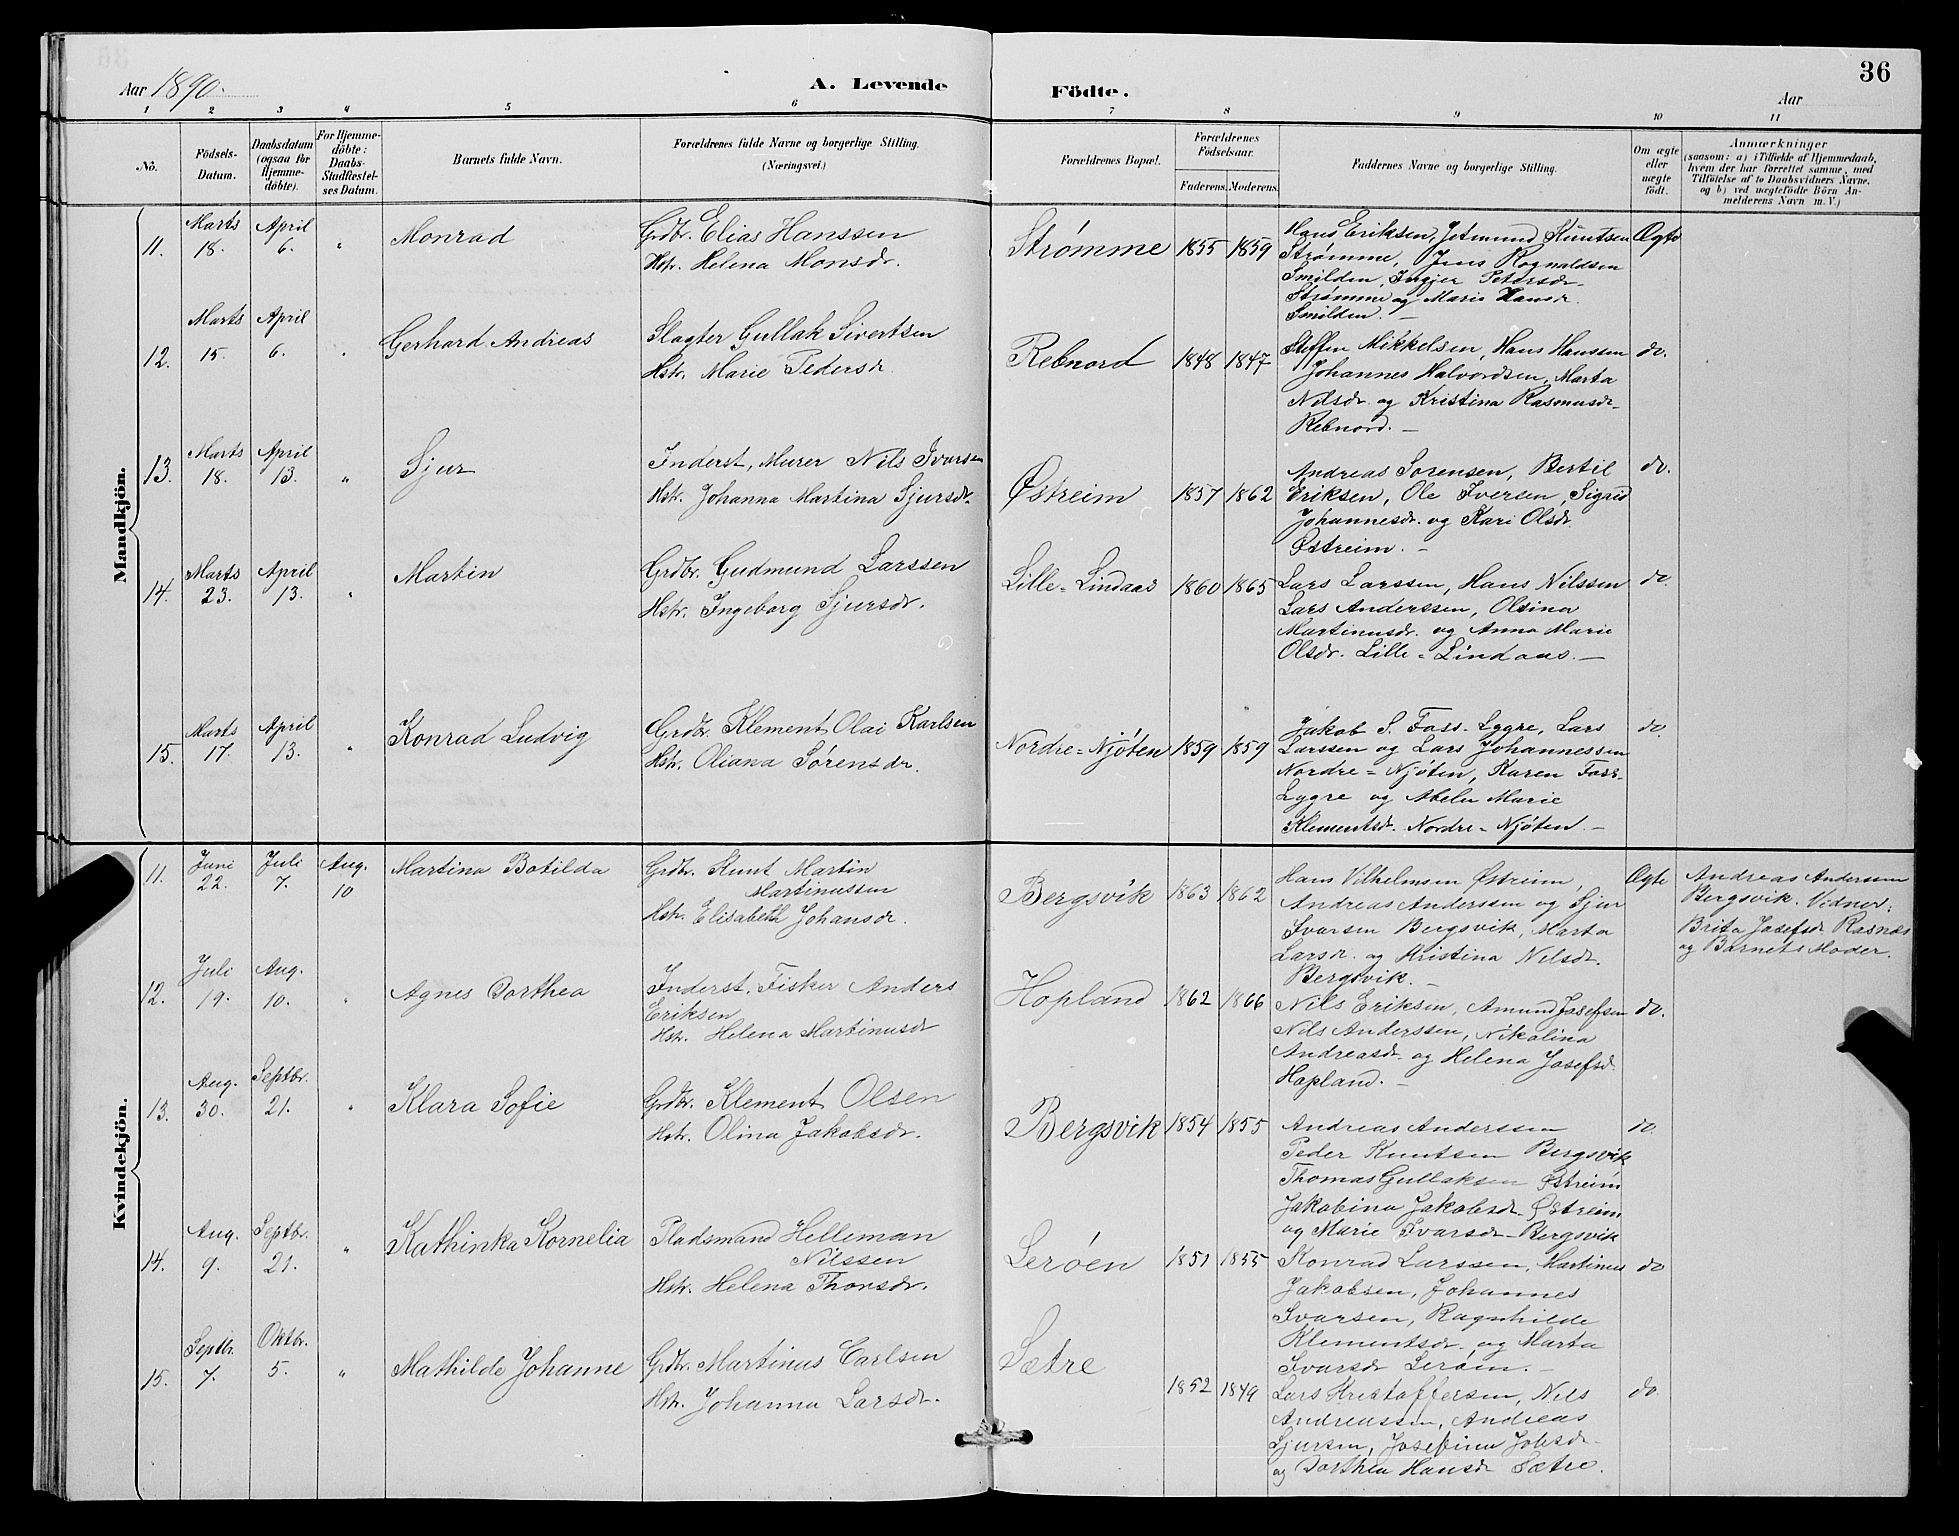 36
Aar 1890.
A. Levende
Födte.
Aar
1 2 3 4 5 6 7 8 9 10 11
No.
Födsels-Datum.
Daabsdatum (ogsaa for Hjemme-döbte).
For Hjemme-döbte: Daabs-Stadfæstel-ses Datum.
Barnets fulde Navn.
Forældrenes fulde Navne og borgerlige Stilling.
(Næringsvei.)
Forældrenes Bopæl.
Forældrenes Födselsaar.
Faderens. Moderens.
Faddernes Navne og borgerlige Stilling.
Om ægte eller uægte født.
Anmærkninger
(saasom: a) i Tilfælde af Hjemmedaab,
hvem der har forrettet samme, med
Tilföielse af to Daabsvidners Navne,
og b) ved uægtefödte Börn An-
melderens Navn m. V.)
Mandkjön.
11. Marts 18. April 6. " Monrad
Grdbr. Elias Hanssen
Hstr. Helena Monsdr.
Strømme 1855 1859
Hans Eriksen, Jetmund Knutsen
Strømme, Jens Rognaldsen
Smilden, Ingjer Petersdr.
Strømme og Marie Hansdr.
Smilden. —
Ægte
12. Marts 15. April 6. " Gerhard Andreas
Slagter Gullak Sivertsen
Hstr. Marie Pedersdr.
Rebnord 1848 1847
Steffen Mikkelsen, Hans Hanssen
Johannes Halvordsen, Marta
Nilsdr. og Kristina Rasmusdr.
Rebnord. —
do.
13. Marts 18. April 13. " Sjur
Inderst, Murer Nils Ivarsen
Hstr. Johanna Martina Sjursdr.
Østreim 1857 1862
Andreas Sorensen, Bertil
Eriksen, Ole Iversen, Sigrid
Johannesdr. og Kari Olsdr.
Østreim. —
do.
14. Marts 23. April 13. " Martin
Grdbr. Gudmund Larssen
Hstr. Ingeborg Sjursdr.
Lille-Lindaas 1860 1865
Lars Larssen, Hans Nilssen
Lars Anderssen, Olsina
Martinusdr. og Anna Marie
Olsdr. Lille-Lindaas. —
do.
15. Marts 17. April 13. " Konrad Ludvig
Grdbr. Klement Olai Karlsen
Hstr. Oliana Sørensdr.
Nordre-Njøten 1859 1859
Jakob S. Foss-Lygre, Lars
Larssen og Lars Johannessen
Nordre-Njøten, Karen Foss-
Lygre og Abelu Marie
Klementsdr. Nordre-Njøten. —
do.
Kvindekjön.
11. Juni 22. Juli 7. Aug. 10 Martina Botilda
Grdbr. Knut Martin
Martinussen
Hstr. Elisabeth Johansdr.
Bergsvik 1863 1862
Hans Vilhelmsen Østreim,
Andreas Anderssen og Sjur
Ivarsen Bergsvik, Marta
Larsdr. og Kristina Nilsdr.
Bergsvik. —
Ægte
Andreas Anderssen
Bergsvik. Vidner:
Brita Josefsdr. Rasnæs
og Barnets Moder.
12. Juli 19. Aug. 10. " Agnes Dorthea
Inderst. Fisker Anders
Eriksen
Hstr. Helena Martinusdr
Hopland 1862 1866
Nils Eriksen, Amund Josefsen
Nils Anderssen, Nikolina
Andreasdr. og Helena Josefsd.
Hopland. —
do.
13. Aug. 30. Septbr. 21. " Klara Sofie
Grdbr. Klement Olsen
Hstr. Olina Jakobsdr.
Bergsvik 1854 1855
Andreas Anderssen
Peder Knutsen Bergsvik
Thomas Gullaksen Østreim
Jakobina Jakobsdr. Østreim
og Marie Ivarsdr. Bergsvik
do.
14. Aug. 9. Septbr. 21. " Kathinka Kornelia
Pladsmand Helleman
Nilssen
Hstr. Helena Thorsdr.
Lerøen 1851 1855
Konrad Larssen, Martinus
Jakobsen, Johannes
Ivarsen, Ragnhilde
Klementsdr. og Marta
Ivarsdr Lerøen. —
do
15. Septbr. 7. Oktbr. 5. " Mathilde Johanne
Grdbr. Martinus Carlsen
Hstr. Johanna Larsdr.
Sætre 1852 1849
Lars Kristoffersen, Nils
Andreassen, Andreas
Sjursen, Josefina Jobsdr.
og Dorthea Hansdr Sætre.
do.